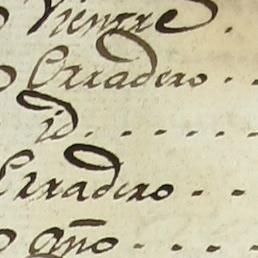 Vientre .
Erradero . .
id . . . . . .
Erradero - - -
año - - - -